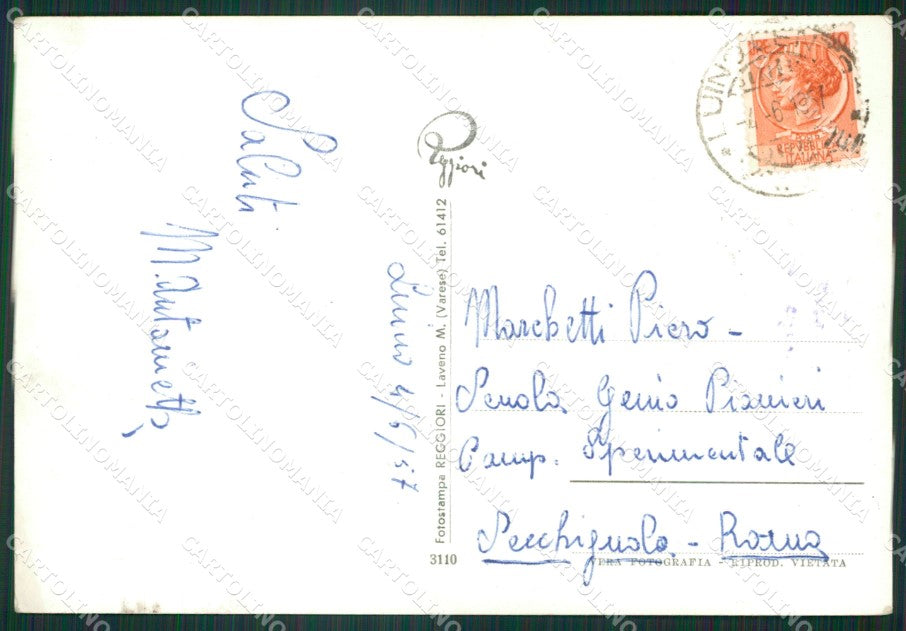 Saluti
M. Antonietta
Luino 4/6/57
Reggiori
Fotostampa REGGIORI - Laveno M. (Varese) Tel. 61412
3110
LUINO
4-6-1957
POSTE
REPVBBLICA
ITALIANA
Marchetti Piero -
Scuola Genio Pionieri
Comp. Sperimentale
Cecchignola - Roma
VERA FOTOGRAFIA - RIPROD. VIETATA
CARTOLINOMANIA